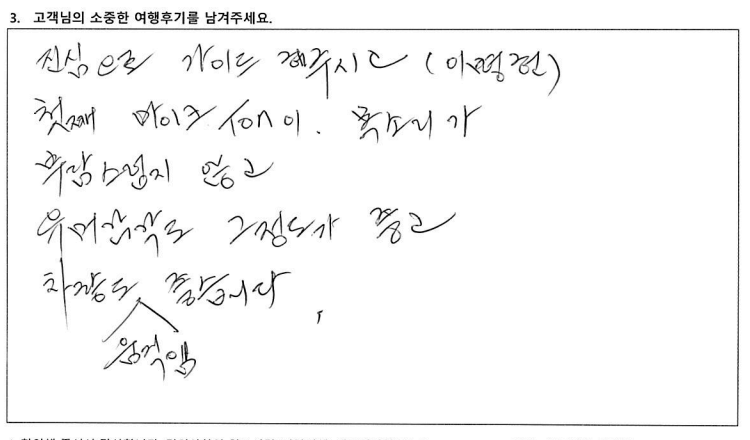 3. 고객님의 소중한 여행후기를 남겨주세요.
진심으로 가이드 해주시고 (이명현)
첫째 마이크 ton이. 목소리가
부담스럽지 않고
유머감각도 그정도가 좋고
차량도 좋습니다
움직임